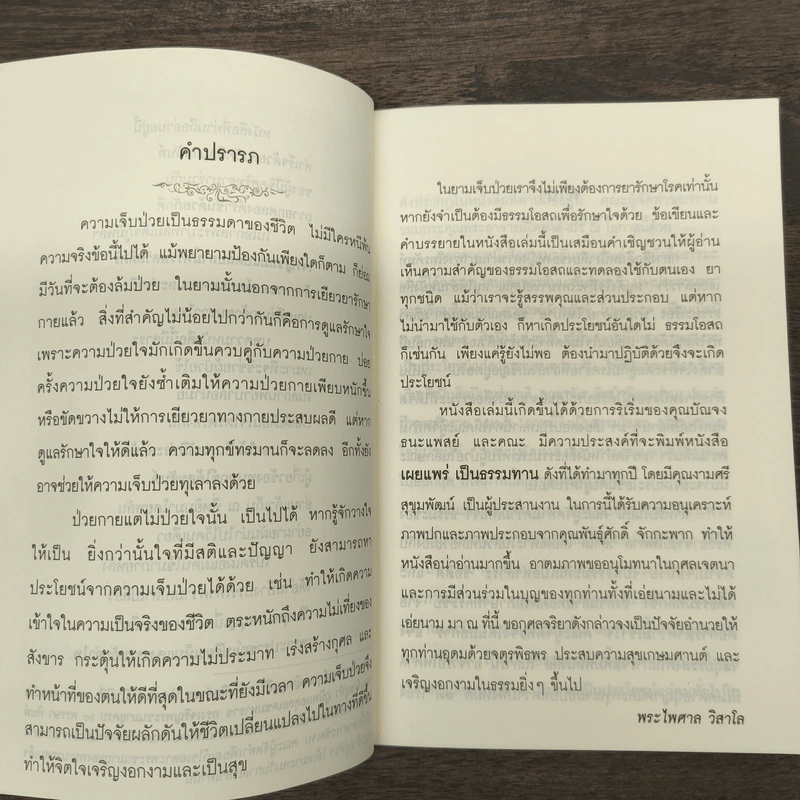 คำปรารภ
ความเจ็บป่วยเป็นธรรมดาของชีวิต ไม่มีใครหนีพ้น
ความจริงข้อนี้ไปได้ แม้พยายามป้องกันเพียงใดก็ตาม ก็ย่อม
มีวันที่จะต้องล้มป่วย ในยามนั้นนอกจากการเยียวยารักษา
กายแล้ว สิ่งที่สำคัญไม่น้อยไปกว่ากันก็คือการดูแลรักษาใจ
เพราะความป่วยใจมักเกิดขึ้นควบคู่กับความป่วยกาย บ่อย
ครั้งความป่วยใจยังซ้ำเติมให้ความป่วยกายเพียบหนักขึ้น
หรือขัดขวางไม่ให้การเยียวยาทางกายประสบผลดี แต่หาก
ดูแลรักษาใจให้ดีแล้ว ความทุกข์ทรมานก็จะลดลง อีกทั้งยัง
อาจช่วยให้ความเจ็บป่วยทุเลาลงด้วย
ป่วยกายแต่ไม่ป่วยใจนั้น เป็นไปได้ หากรู้จักวางใจ
ให้เป็น ยิ่งกว่านั้นใจที่มีสติและปัญญา ยังสามารถหา
ประโยชน์จากความเจ็บป่วยได้ด้วย เช่น ทำให้เกิดความ
เข้าใจในความเป็นจริงของชีวิต ตระหนักถึงความไม่เที่ยงของ
สังขาร กระตุ้นให้เกิดความไม่ประมาท เร่งสร้างกุศล และ
ทำหน้าที่ของตนให้ดีที่สุดในขณะที่ยังมีเวลา ความเจ็บป่วยจึง
สามารถเป็นปัจจัยผลักดันให้ชีวิตเปลี่ยนแปลงไปในทางที่ดีขึ้น
ทำให้จิตใจเจริญงอกงามและเป็นสุข
ในยามเจ็บป่วยเราจึงไม่เพียงต้องการยารักษาโรคเท่านั้น
หากยังจำเป็นต้องมีธรรมโอสถเพื่อรักษาใจด้วย ข้อเขียนและ
คำบรรยายในหนังสือเล่มนี้เป็นเสมือนคำเชิญชวนให้ผู้อ่าน
เห็นความสำคัญของธรรมโอสถและทดลองใช้กับตนเอง ยา
ทุกชนิด แม้ว่าเราจะรู้สรรพคุณและส่วนประกอบ แต่หาก
ไม่นำมาใช้กับตัวเอง ก็หาเกิดประโยชน์อันใดไม่ ธรรมโอสถ
ก็เช่นกัน เพียงแค่รู้ยังไม่พอ ต้องนำมาปฏิบัติด้วยจึงจะเกิด
ประโยชน์
หนังสือเล่มนี้เกิดขึ้นได้ด้วยการริเริ่มของคุณบัณจง
ธนะแพสย์ และคณะ มีความประสงค์ที่จะพิมพ์หนังสือ
เผยแพร่ เป็นธรรมทาน ดังที่ได้ทำมาทุกปี โดยมีคุณงามศรี
สุขุมพัฒน์ เป็นผู้ประสานงาน ในการนี้ได้รับความอนุเคราะห์
ภาพปกและภาพประกอบจากคุณพันธุ์ศักดิ์ จักกะพาก ทำให้
หนังสือน่าอ่านมากขึ้น อาตมภาพขออนุโมทนาในกุศลเจตนา
และการมีส่วนร่วมในบุญของทุกท่านทั้งที่เอ่ยนามและไม่ได้
เอ่ยนาม มา ณ ที่นี้ ขอกุศลจริยาดังกล่าวจงเป็นปัจจัยอำนวยให้
ทุกท่านอุดมด้วยจตุรพิธพร ประสบความสุขเกษมศานต์ และ
เจริญงอกงามในธรรมยิ่งๆ ขึ้นไป
พระไพศาล วิสาโล